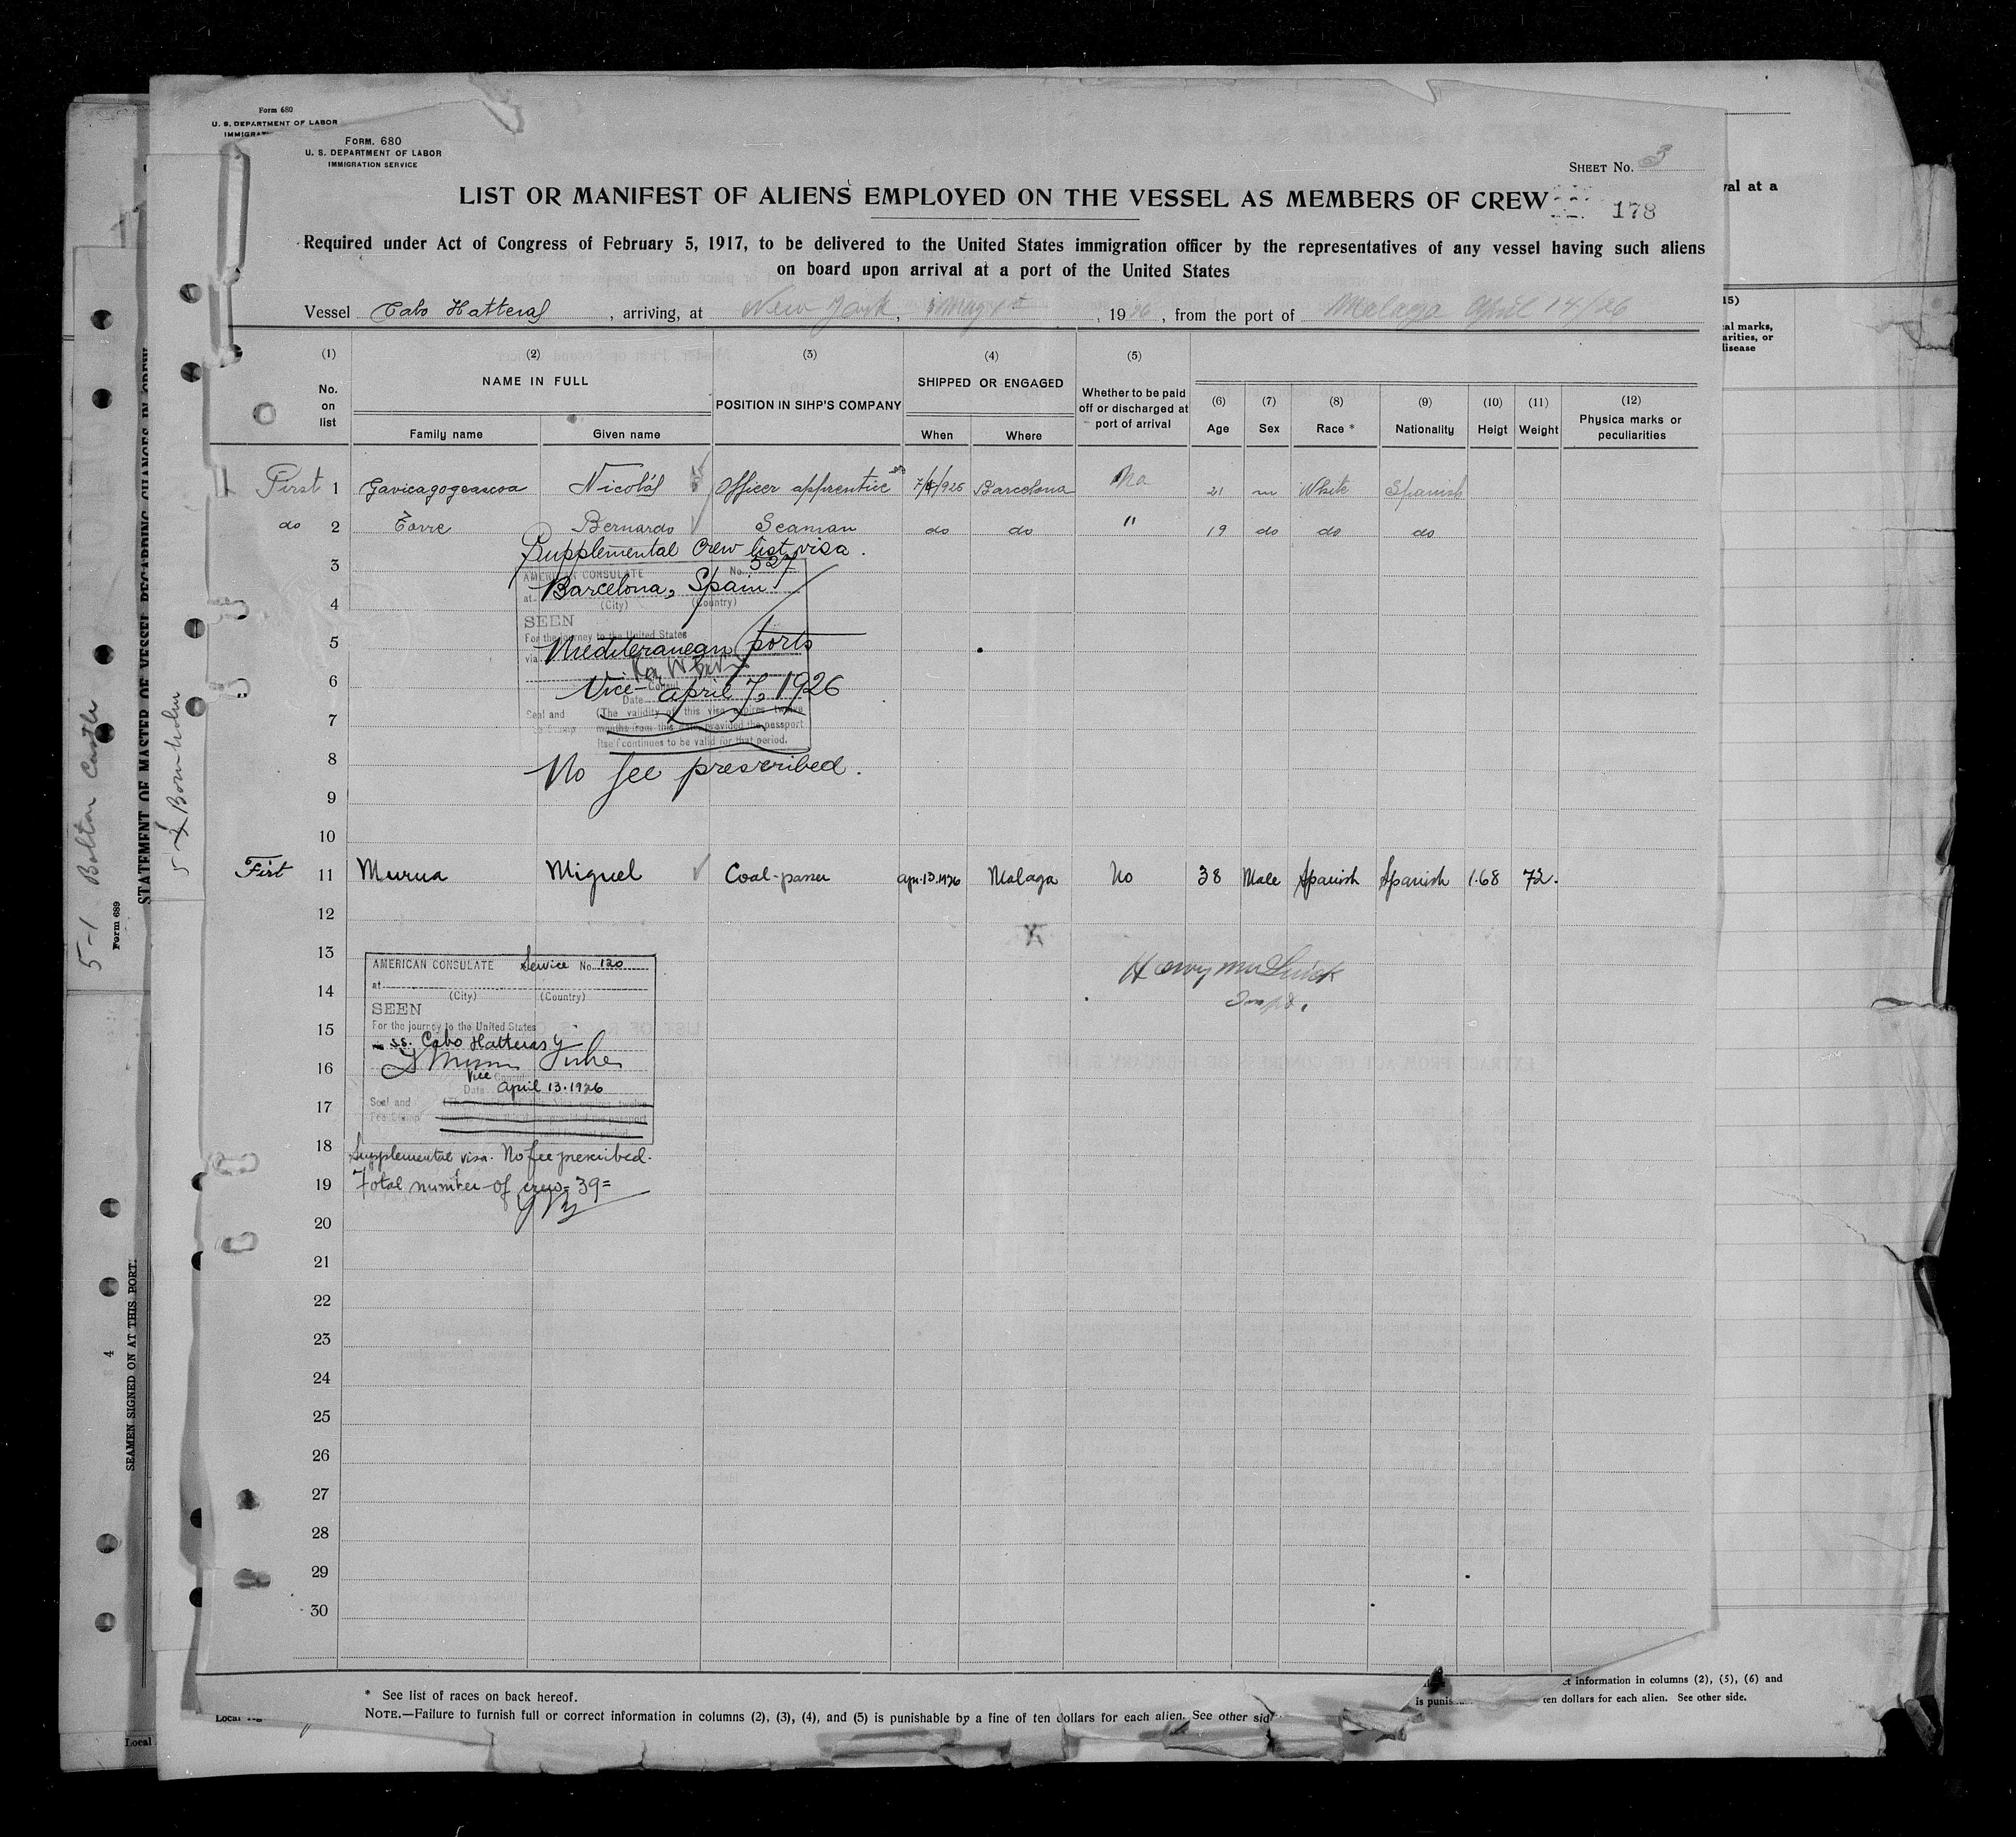 Form 680
U. S. DEPARTMENT OF LABOR
FORM. 680
U. S. DEPARTMENT OF LABOR
IMMIGRATION SERVICE
SHEET No. 3
LIST OR MANIFEST OF ALIENS EMPLOYED ON THE VESSEL AS MEMBERS OF CREW
178
Required under Act of Congress of February 5, 1917, to be delivered to the United States immigration officer by the representatives of any vessel having such aliens
on board upon arrival at a port of the United States
Vessel Cabo Hatteras, arriving, at New York, May 1st, 1926, from the port of Malaga April 14/26
(1) (2) (3) (4) (5)
No. on list
NAME IN FULL
Family name Given name
POSITION IN SIHP'S COMPANY
SHIPPED OR ENGAGED
When Where
Whether to be paid off or discharged at port of arrival
(6) (7) (8) (9) (10) (11) (12)
Age Sex Race * Nationality Heigt Weight Physica marks or peculiarities
First 1 Gavicagogeascoa Nicolás Officer apprentice 7/4/926 Barcelona No 21 m White Spanish
do 2 Torre Bernardo Seaman do do " 19 do do do
Supplemental Crew list visa.
3
AMERICAN CONSULATE No. 527
at Barcelona, Spain
4
(City) (Country)
SEEN
For the journey to the United States
5
via Mediteranean ports
6
Vice-Consul
Date April 7, 1926
7
Seal and (The validity of this visa expires twelve
months from this date provided the passport
itself continues to be valid for that period.
8
No fee prescribed.
9
10
First 11 Murua Miguel Coal-passer Apr. 13. 1926 Malaga No 38 Male Spanish Spanish 1.68 72.
12
X
13
AMERICAN CONSULATE Service No. 120
at
14
(City) (Country)
SEEN
15
For the journey to the United States
ss. Cabo Hatteras
16
Vice Consul
Date April 13. 1926
17
Seal and
Fee Stamp
18
Supplemental visa. No fee prescribed.
19
Total number of crew= 39=
20
21
22
23
24
25
26
27
28
29
30
* See list of races on back hereof.
NOTE.—Failure to furnish full or correct information in columns (2), (3), (4), and (5) is punishable by a fine of ten dollars for each alien. See other sid
information in columns (2), (5), (6) and
ten dollars for each alien. See other side.
val at a
15)
al marks,
arities, or
disease
5-1 Bolton Castle
Form 689
STATEMENT OF MASTER OF VESSEL REGARDING CHANGES IN CREW
Bornholm
4
SEAMEN SIGNED ON AT THIS PORT.
Local